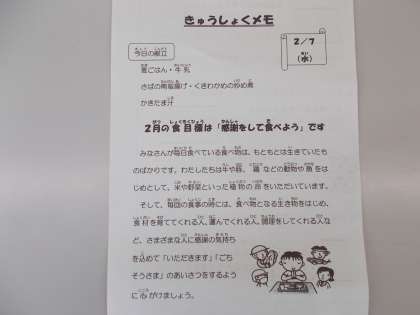 きゅうしょくメモ
2/7
(水)
今日の献立
麦ごはん・牛乳
さばの南蛮揚げ・くきわかめの炒め煮
かきたま汁
2月の食目標は「感謝をして食べよう」です
みなさんが毎日食べている食べ物は、もともとは生きていたも
のばかりです。わたしたちは牛や豚、鶏などの動物や魚をは
じめとして、米や野菜といった植物の命をいただいています。
そして、毎回の食事の時には、食べ物となる生き物をはじめ、
食材を育ててくれる人、運んでくれる人、調理をしてくれる人な
ど、さまざまな人に感謝の気持ち
を込めて「いただきます」「ごち
そうさま」のあいさつをするよう
に心がけましょう。